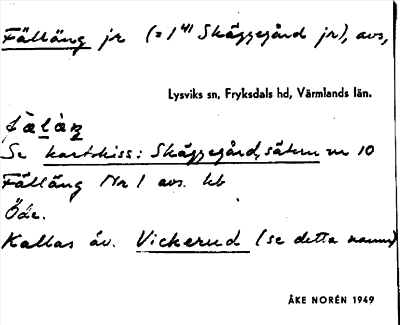 Fälläng jr (= 1⁴¹ Skäggegård jr), avs,
Lysviks sn, Fryksdals hd, Värmlands län.
Se kartskiss: Skäggegård, sätern nr 10
Fälläng Nr 1 avs. kb
Öde.
Kallas äv. Vickerud (se detta namn)
ÅKE NORÉN 1949